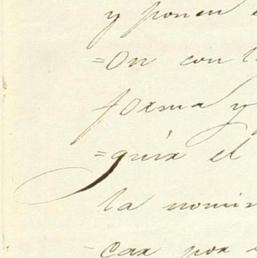 y ponen
=on con l
forma y
=guía el
la nomin
car por